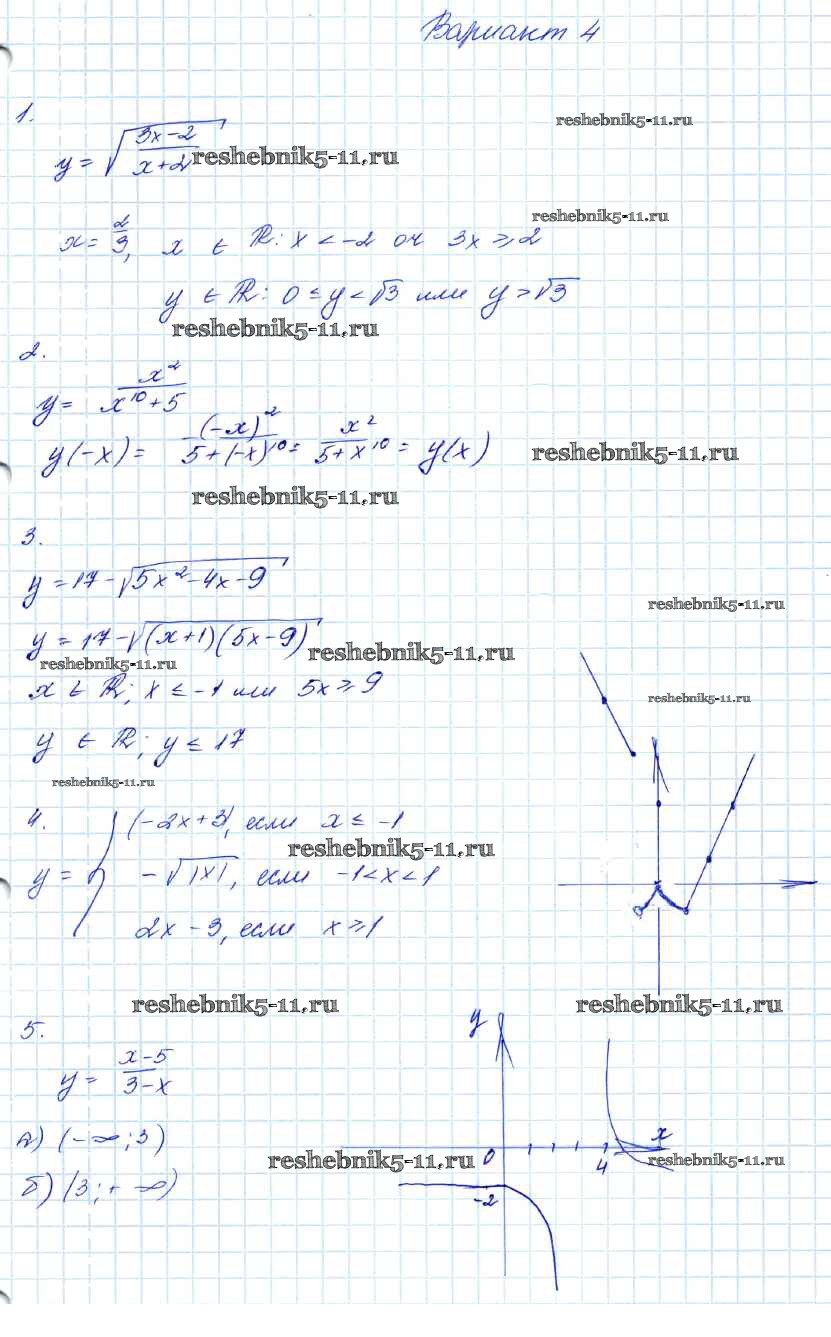 Вариант 4
1.
reshebnik5-11.ru
y = √((3x-2)/(x+2))
reshebnik5-11.ru
reshebnik5-11.ru
x = 2/3, x ∈ ℝ: x < -2 or 3x ⩾ 2
y ∈ ℝ: 0 ≤ y < √3 или y > √3
reshebnik5-11.ru
2.
y = x²/(x¹⁰+5)
y(-x) = (-x)²/(5+(-x)¹⁰) = x²/(5+x¹⁰) = y(x)
reshebnik5-11.ru
reshebnik5-11.ru
3.
y = 17 - √(5x²-4x-9)
reshebnik5-11.ru
y = 17 - √((x+1)(5x-9))
reshebnik5-11.ru
reshebnik5-11.ru
x ∈ ℝ; x ≤ -1 или 5x ⩾ 9
reshebnik5-11.ru
y ∈ ℝ; y ≤ 17
reshebnik5-11.ru
4.
y = { (-2x+3), если x ≤ -1
reshebnik5-11.ru
-√|x|, если -1<x<1
2x - 3, если x ⩾ 1
reshebnik5-11.ru
reshebnik5-11.ru
5.
y = (x-5)/(3-x)
y
x
0
4
-2
а) (-∞; 3)
reshebnik5-11.ru
reshebnik5-11.ru
б) (3; +∞)